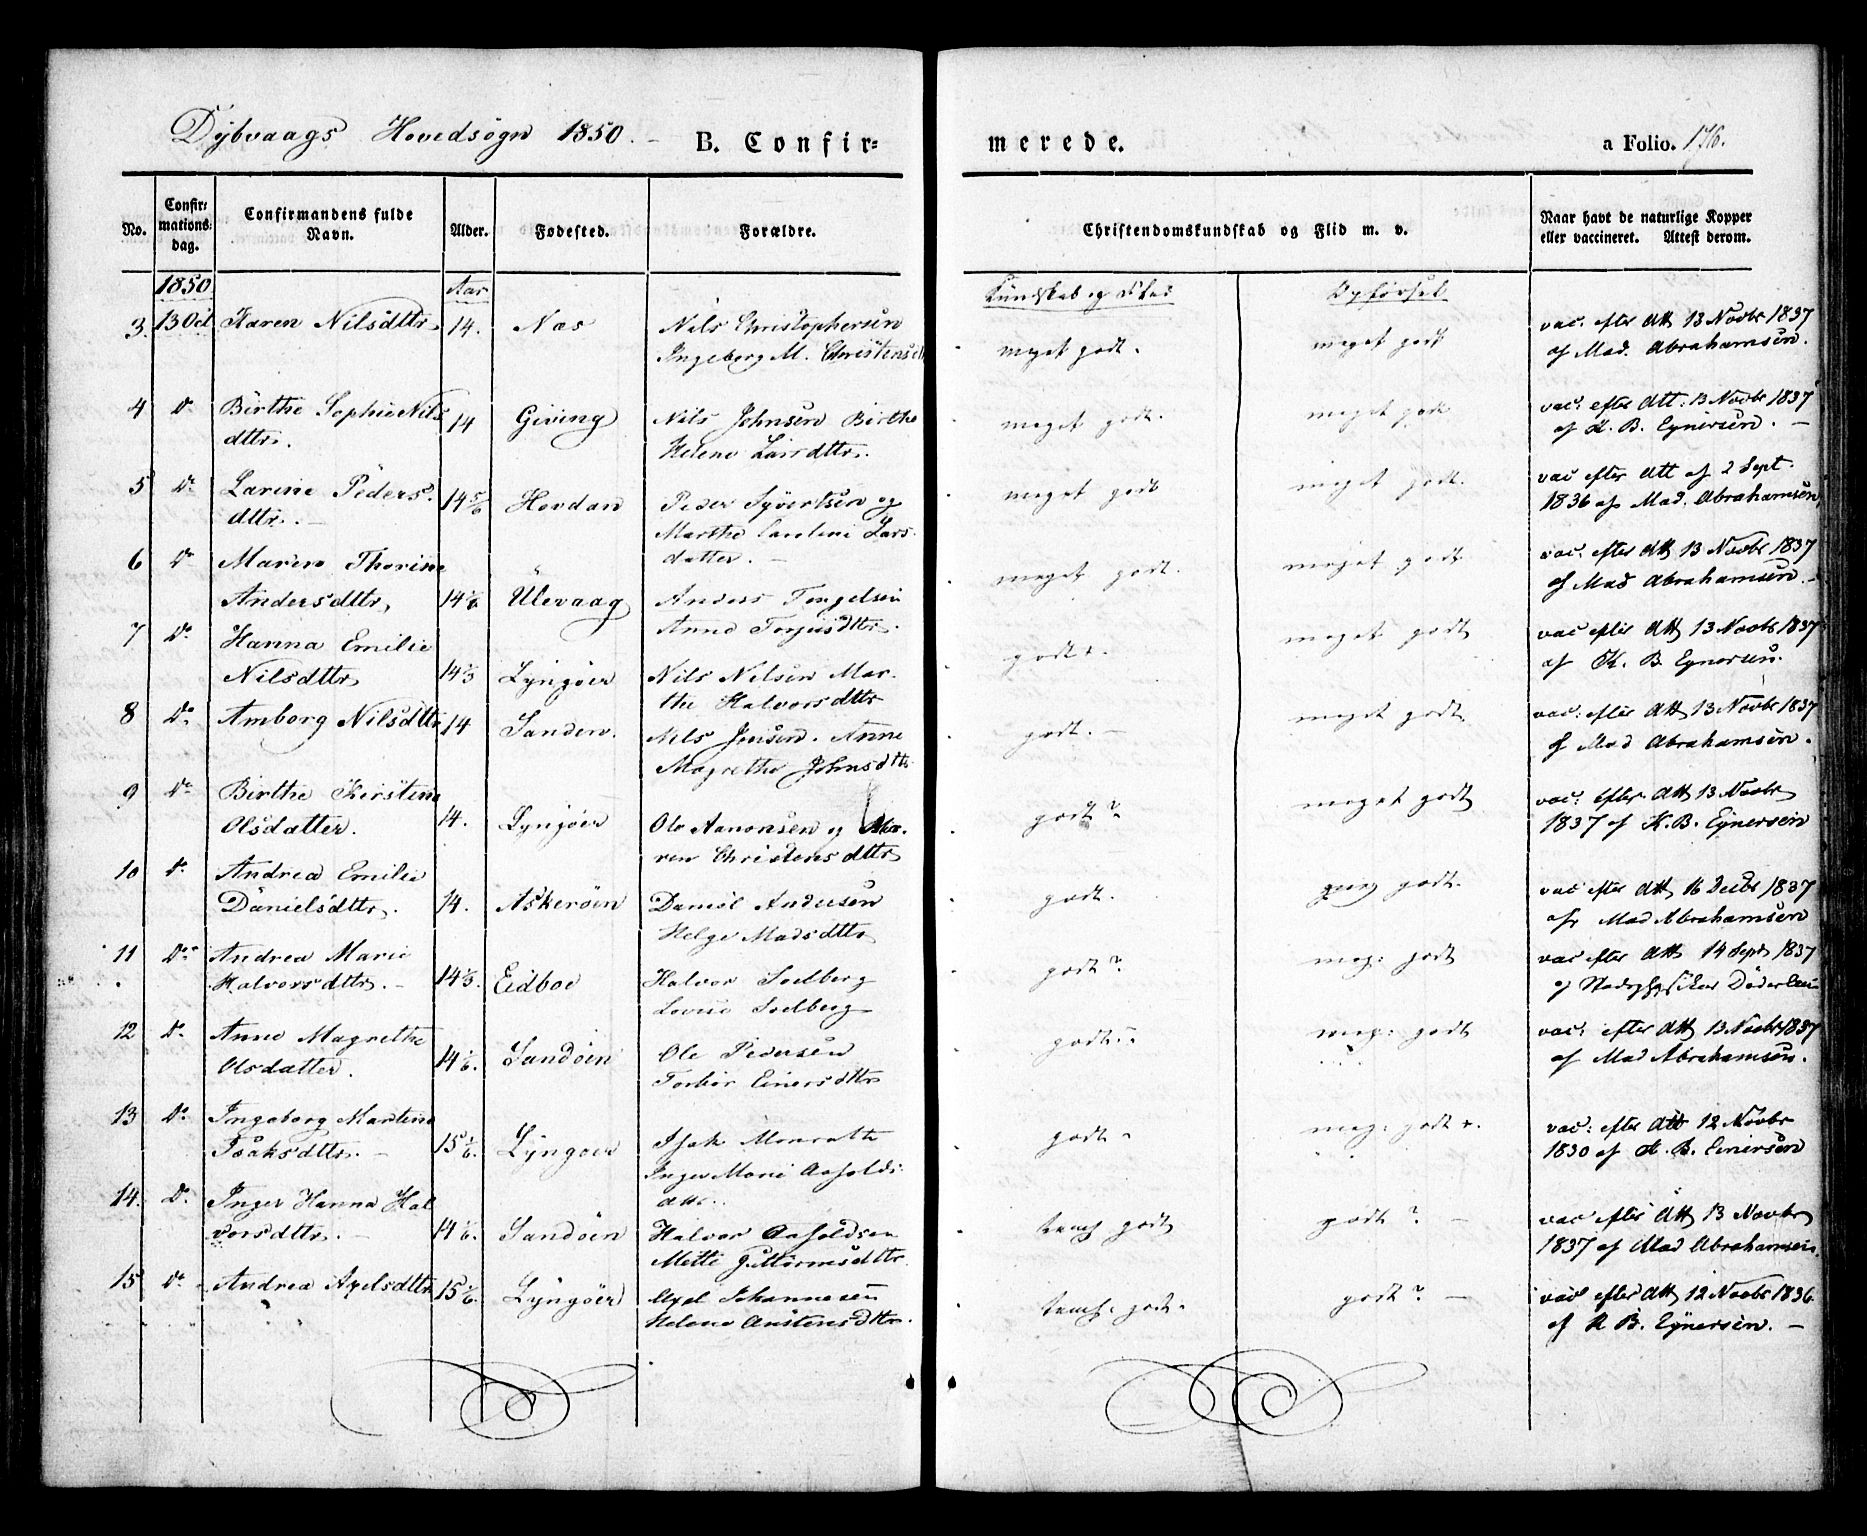 Dybvaags Hovedsogn 1850. – B. Confir- merede. a Folio. 176.
No. Confir- mations- dag. Confirmandens fulde Navn. Alder. Fødested. Forældre. Christendomskundskab og Flid m. v. Naar havt de naturlige Kopper eller vaccineret. Attest derom.
1850 Aar Kundskab og Flid Opførsel
3. 13 Oct Karen Nilsdttr 14. Næs Nils Christophersen meget godt. meget godt vac. efter Att 13 Novbr 1837
Ingeborg M. Christensd af Mad. Abrahamsen.
4 Do Birthe Sophie Nils 14 Giving Nils Johnsen Birthe meget godt. meget godt vac: efter Att: 13 Novbr 1837
dttr. Helene Larsdttr. af K. B. Eynersen. –
5 Do Larine Peders- 14 5/6 Hovdan Peder Syvertsen og meget godt meget godt. vac efter Att af 2 Sept.
dttr. – Marthe Caroline Lars- 1836 af Mad. Abrahamsen
datter. –
6 Do Maren Thorine meget godt. meget godt vac. efter Att 13 Novbr 1837
Andersdttr, 14 1/6 Ulevaag Anders Tengelsen af Mad Abrahamsen. –
Anne Terjusdttr.
7 Do Hanna Emilie godt. meget godt vac efter Att 13 Novbr 1837
Nilsdttr 14 1/3 Lyngøer Nils Nilsen Mar- af K. B. Eynersen.
the Halvorsdttr
8 Do Amborg Nilsdttr 14 Sanden. Nils Jensen. Anne godt. – meget godt. vac: efter Att 13 Novbr 1837
Magrethe Johnsdttr af Mad Abrahamsen.
9 Do Birthe Kirstine meget godt vac: efter Att 13 Novbr
Olsdatter. 14. Lyngøer Ole Aanonsen og Ma- godt? 1837 af K. B. Eynersen
ren Christensdttr
10 Do Andrea Emilie godt. vac efter Att 16 Decbr 1837
Danielsdttr. 14. Askerøen Daniel Andersen godt. af Mad Abrahamsen
Helge Madsdttr
11 Do Andrea Marie godt? meg: godt vac efter Att 14 Sept 1837
Halvorsdttr. – 14 1/3. Eidboe Halvor Soelberg af Stadsphysikus Døderlein
Lovise Soelberg
12 Do Anne Magrethe godt. meg: godt vac: efter Att 13 Novbr 1837
Olsdatter. 14 1/6. Sandøen Ole Pedersen af Mad Abrahamsen.
Torbor Einersdttr
13 Do Ingeborg Martine meg: godt. vac: efter Att 12 Novbr
Isaksdttr. – 15 1/6. Lyngøer Isak Monrath godt. 1830 af K. B. Einersen
Inger Marie Aasolds-
dttr.
14. Do Inger Hanna Hal temf godt godt? – vac efter Att 13 Novbr
vorsdttr. – 14 1/6. Sandøen Halvor Aasoldsen 1837 af Mad Abrahamsen.
Mette Guttormsdttr
15 Do Andrea Axelsdttr 15 1/6. Lyngøer Axel Johannesen temf. godt. godt? – vac efter Att 12 Novbr 1836
Helene Austensdttr. af K B. Eynersen. –